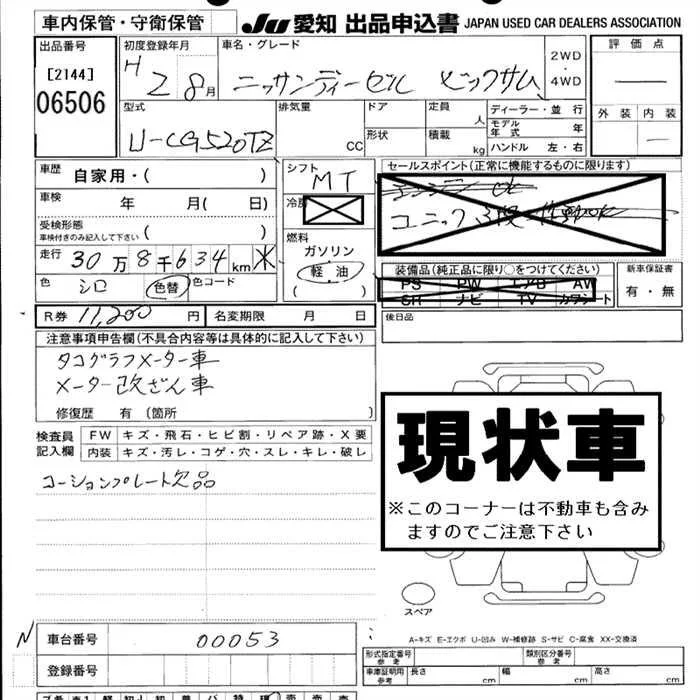 車内保管・守衛保管
JU 愛知 出品申込書 JAPAN USED CAR DEALERS ASSOCIATION
出品番号
[2144]
06506
初度登録年月
H 2 8月
車名・グレード
ニッサンディーゼル ビックサム
2WD
・
4WD
評価点
外装 内装
型式
U-CG520TZ
排気量
CC
ドア
形状
定員
人
積載
kg
ディーラー・並行
モデル年式 年
ハンドル 左・右
車歴
自家用・( )
車検
年 月( 日)
受検形態
車検付きのみ記入して下さい ( )
走行 30万8千634km ※
色 シロ 色替 色コード
シフト
MT
冷房
燃料
ガソリン
軽油
( )
セールスポイント(正常に機能するものに限ります)
エンジン OK
ユニック 3段
装備品(純品に限り○をつけてください)
PS PW エアB AW
SR ナビ TV カワシート
新車保証書
有・無
R券 11,200円 名変期限 月 日
後日品
注意事項申告欄(不具合内容等は具体的に記入して下さい)
タコグラフメーター車
メーター改ざん車
修復歴 有 (箇所 )
検査員記入欄
FW キズ・飛石・ヒビ割・リペア跡・X要
内装 キズ・汚レ・コゲ・穴・スレ・キレ・破レ
コーションプレート欠品
現状車
※このコーナーは不動車も含み
ますのでご注意下さい
スペア
A-キズ E-エクボ U-凹み W-補修跡 S-サビ C-腐食 XX-交換済
N
車台番号 00053
登録番号
形式指定番号 参考
類別区分番号 参考
車庫証明用 参考 長さ 幅 高さ